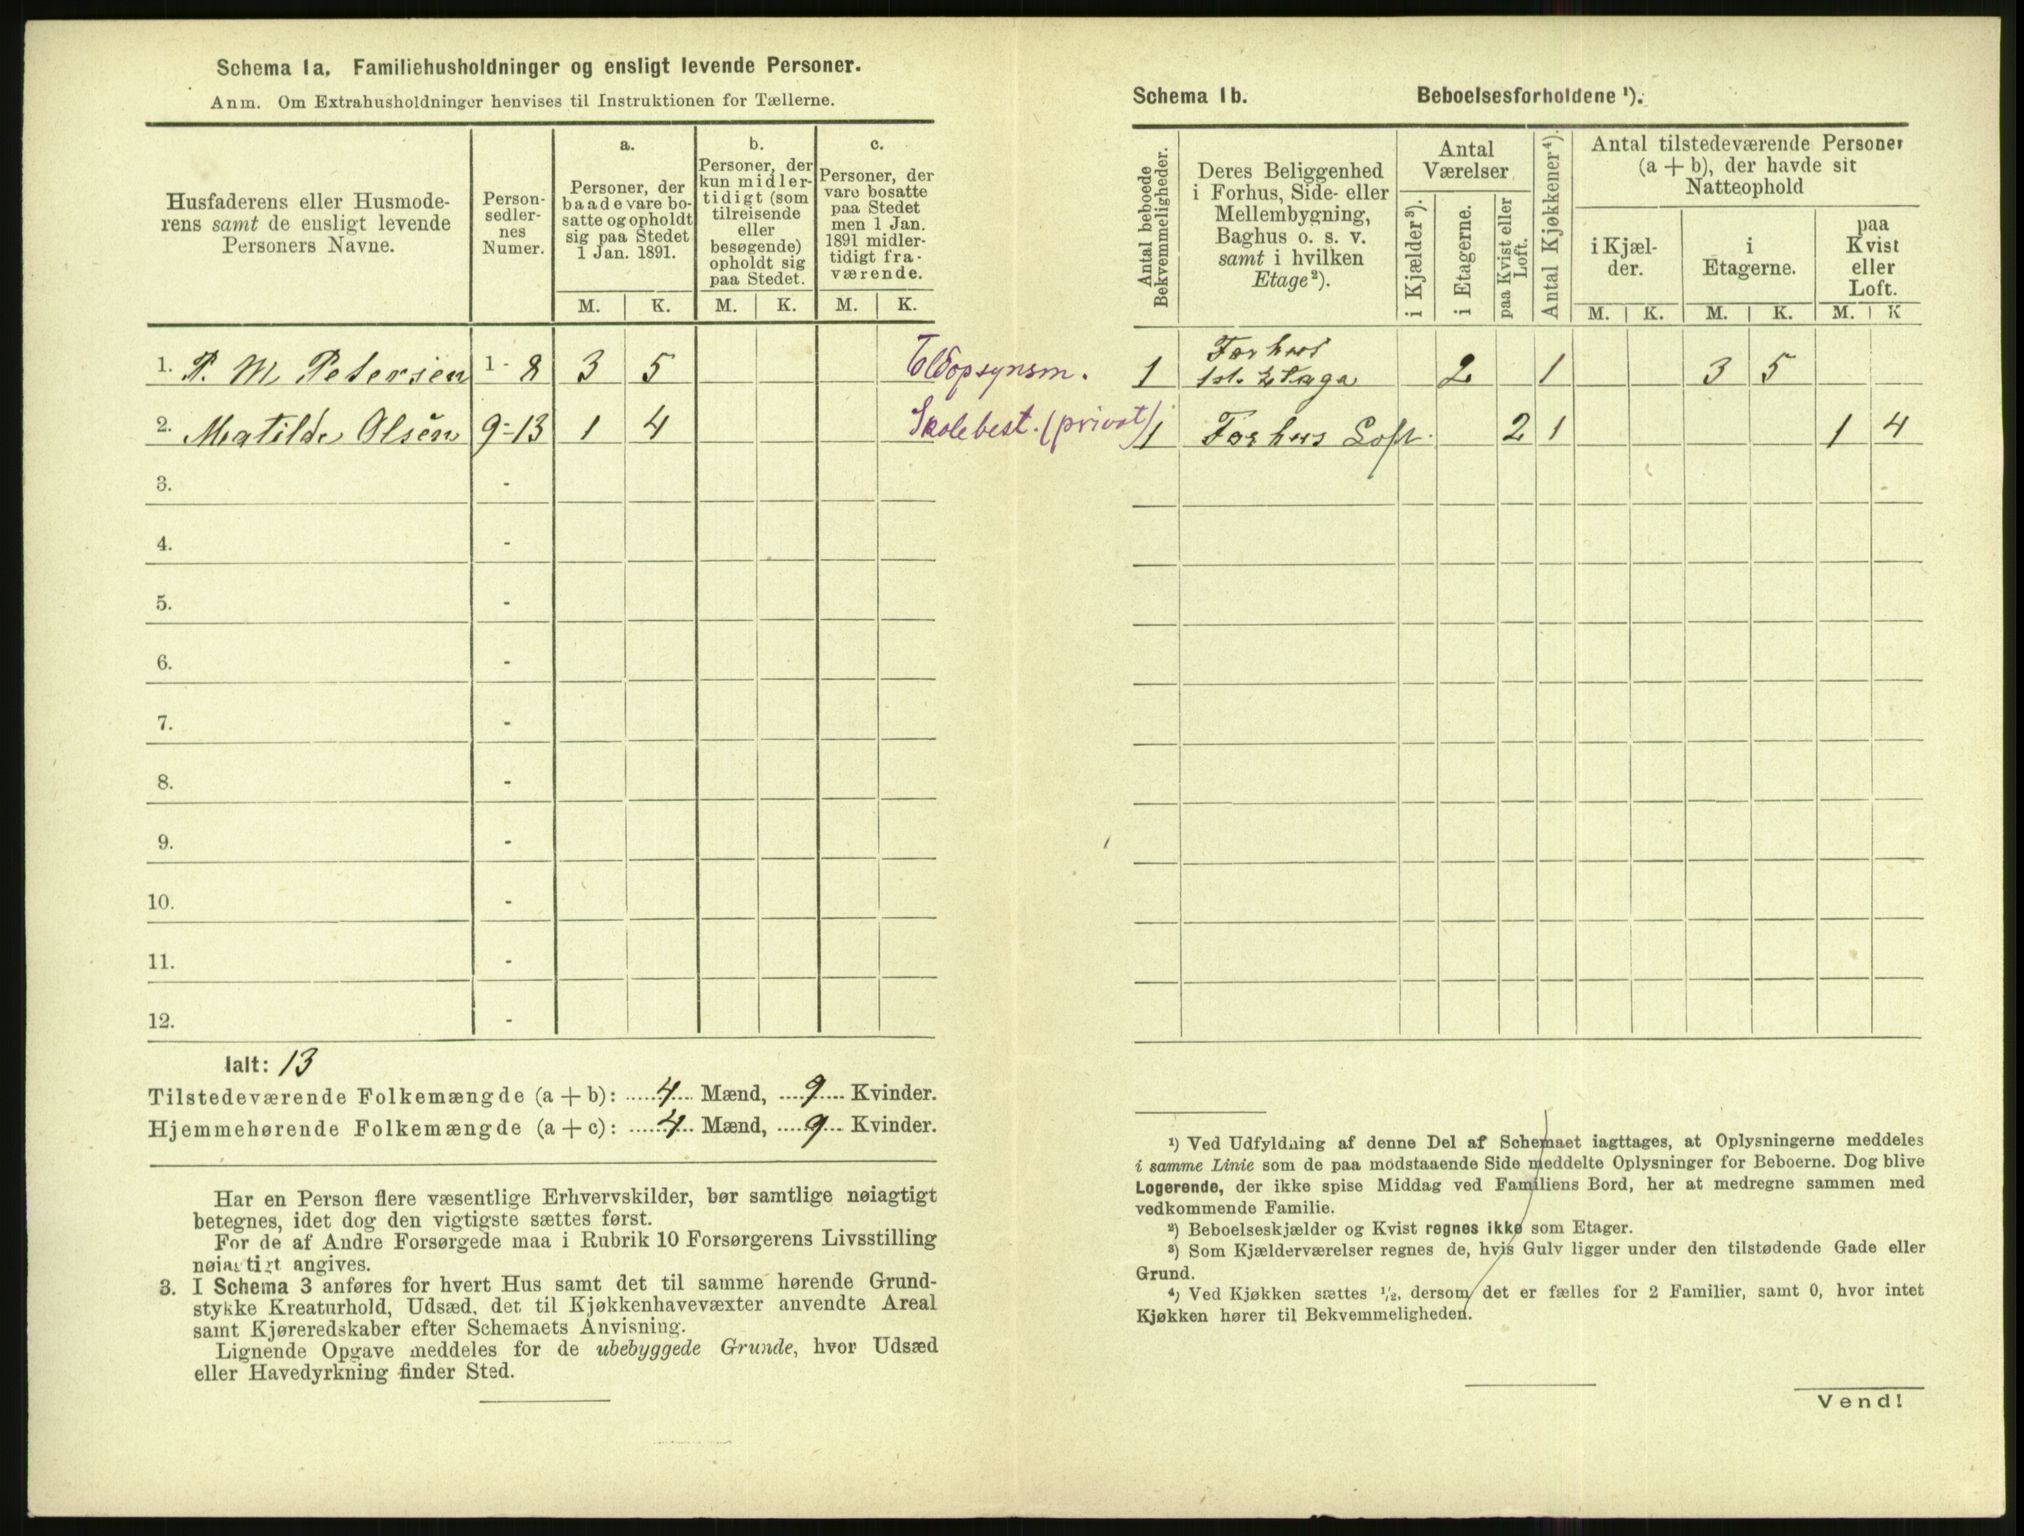 Schema 1a. Familiehusholdninger og ensligt levende Personer.
Anm. Om Extrahusholdninger henvises til Instruktionen for Tællerne.
Husfaderens eller Husmode-
rens samt de ensligt levende
Personers Navne.
Person-
sedler-
nes
Numer.
a.
Personer, der
baade vare bo-
satte og opholdt
sig paa Stedet
1 Jan. 1891.
b.
Personer, der
kun midler-
tidigt (som
tilreisende
eller
besøgende)
opholdt sig
paa Stedet.
c.
Personer, der
vare bosatte
paa Stedet
men 1 Jan.
1891 midler-
tidigt fra-
værende.
M. K. M. K. M. K.
1. P. M. Petersen 1 - 8 3 5 Toldopsynsm.
2. Matilde Olsen 9 - 13 1 4 Skolebest. (privat)
3. -
4. -
5. -
6. -
7. -
8. -
9. -
10. -
11. -
12. -
Ialt: 13
Tilstedeværende Folkemængde (a + b): 4 Mænd, 9 Kvinder.
Hjemmehørende Folkemængde (a + c): 4 Mænd, 9 Kvinder.
Har en Person flere væsentlige Erhvervskilder, bør samtlige nøiagtigt
betegnes, idet dog den vigtigste sættes først.
For de af Andre Forsørgede maa i Rubrik 10 Forsørgerens Livsstilling
nøiagtigt angives.
3. I Schema 3 anføres for hvert Hus samt det til samme hørende Grund-
stykke Kreaturhold, Udsæd, det til Kjøkkenhavevæxter anvendte Areal
samt Kjøreredskaber efter Schemaets Anvisning.
Lignende Opgave meddeles for de ubebyggede Grunde, hvor Udsæd
eller Havedyrkning finder Sted.
Schema 1b. Beboelsesforholdene ¹).
Antal beboede
Bekvemmeligheder.
Deres Beliggenhed
i Forhus, Side- eller
Mellembygning,
Baghus o. s. v.
samt i hvilken
Etage²).
Antal
Værelser
i Kjælder³).
i Etagerne.
paa Kvist eller
Loft.
Antal Kjøkkener⁴).
Antal tilstedeværende Personer
(a + b), der havde sit
Natteophold
i Kjæl-
der.
i
Etagerne.
paa
Kvist
eller
Loft.
M. K. M. K. M. K
1 Forhus
1st. Etage 2 1 3 5
1 Forhus Loft. 2 1 1 4
¹) Ved Udfyldning af denne Del af Schemaet iagttages, at Oplysningerne meddeles
i samme Linie som de paa modstaaende Side meddelte Oplysninger for Beboerne. Dog blive
Logerende, der ikke spise Middag ved Familiens Bord, her at medregne sammen med
vedkommende Familie.
²) Beboelseskjælder og Kvist regnes ikke som Etager.
³) Som Kjælderværelser regnes de, hvis Gulv ligger under den tilstødende Gade eller
Grund.
⁴) Ved Kjøkken sættes ¹/₂, dersom det er fælles for 2 Familier, samt 0, hvor intet
Kjøkken hører til Bekvemmeligheden.
Vend!